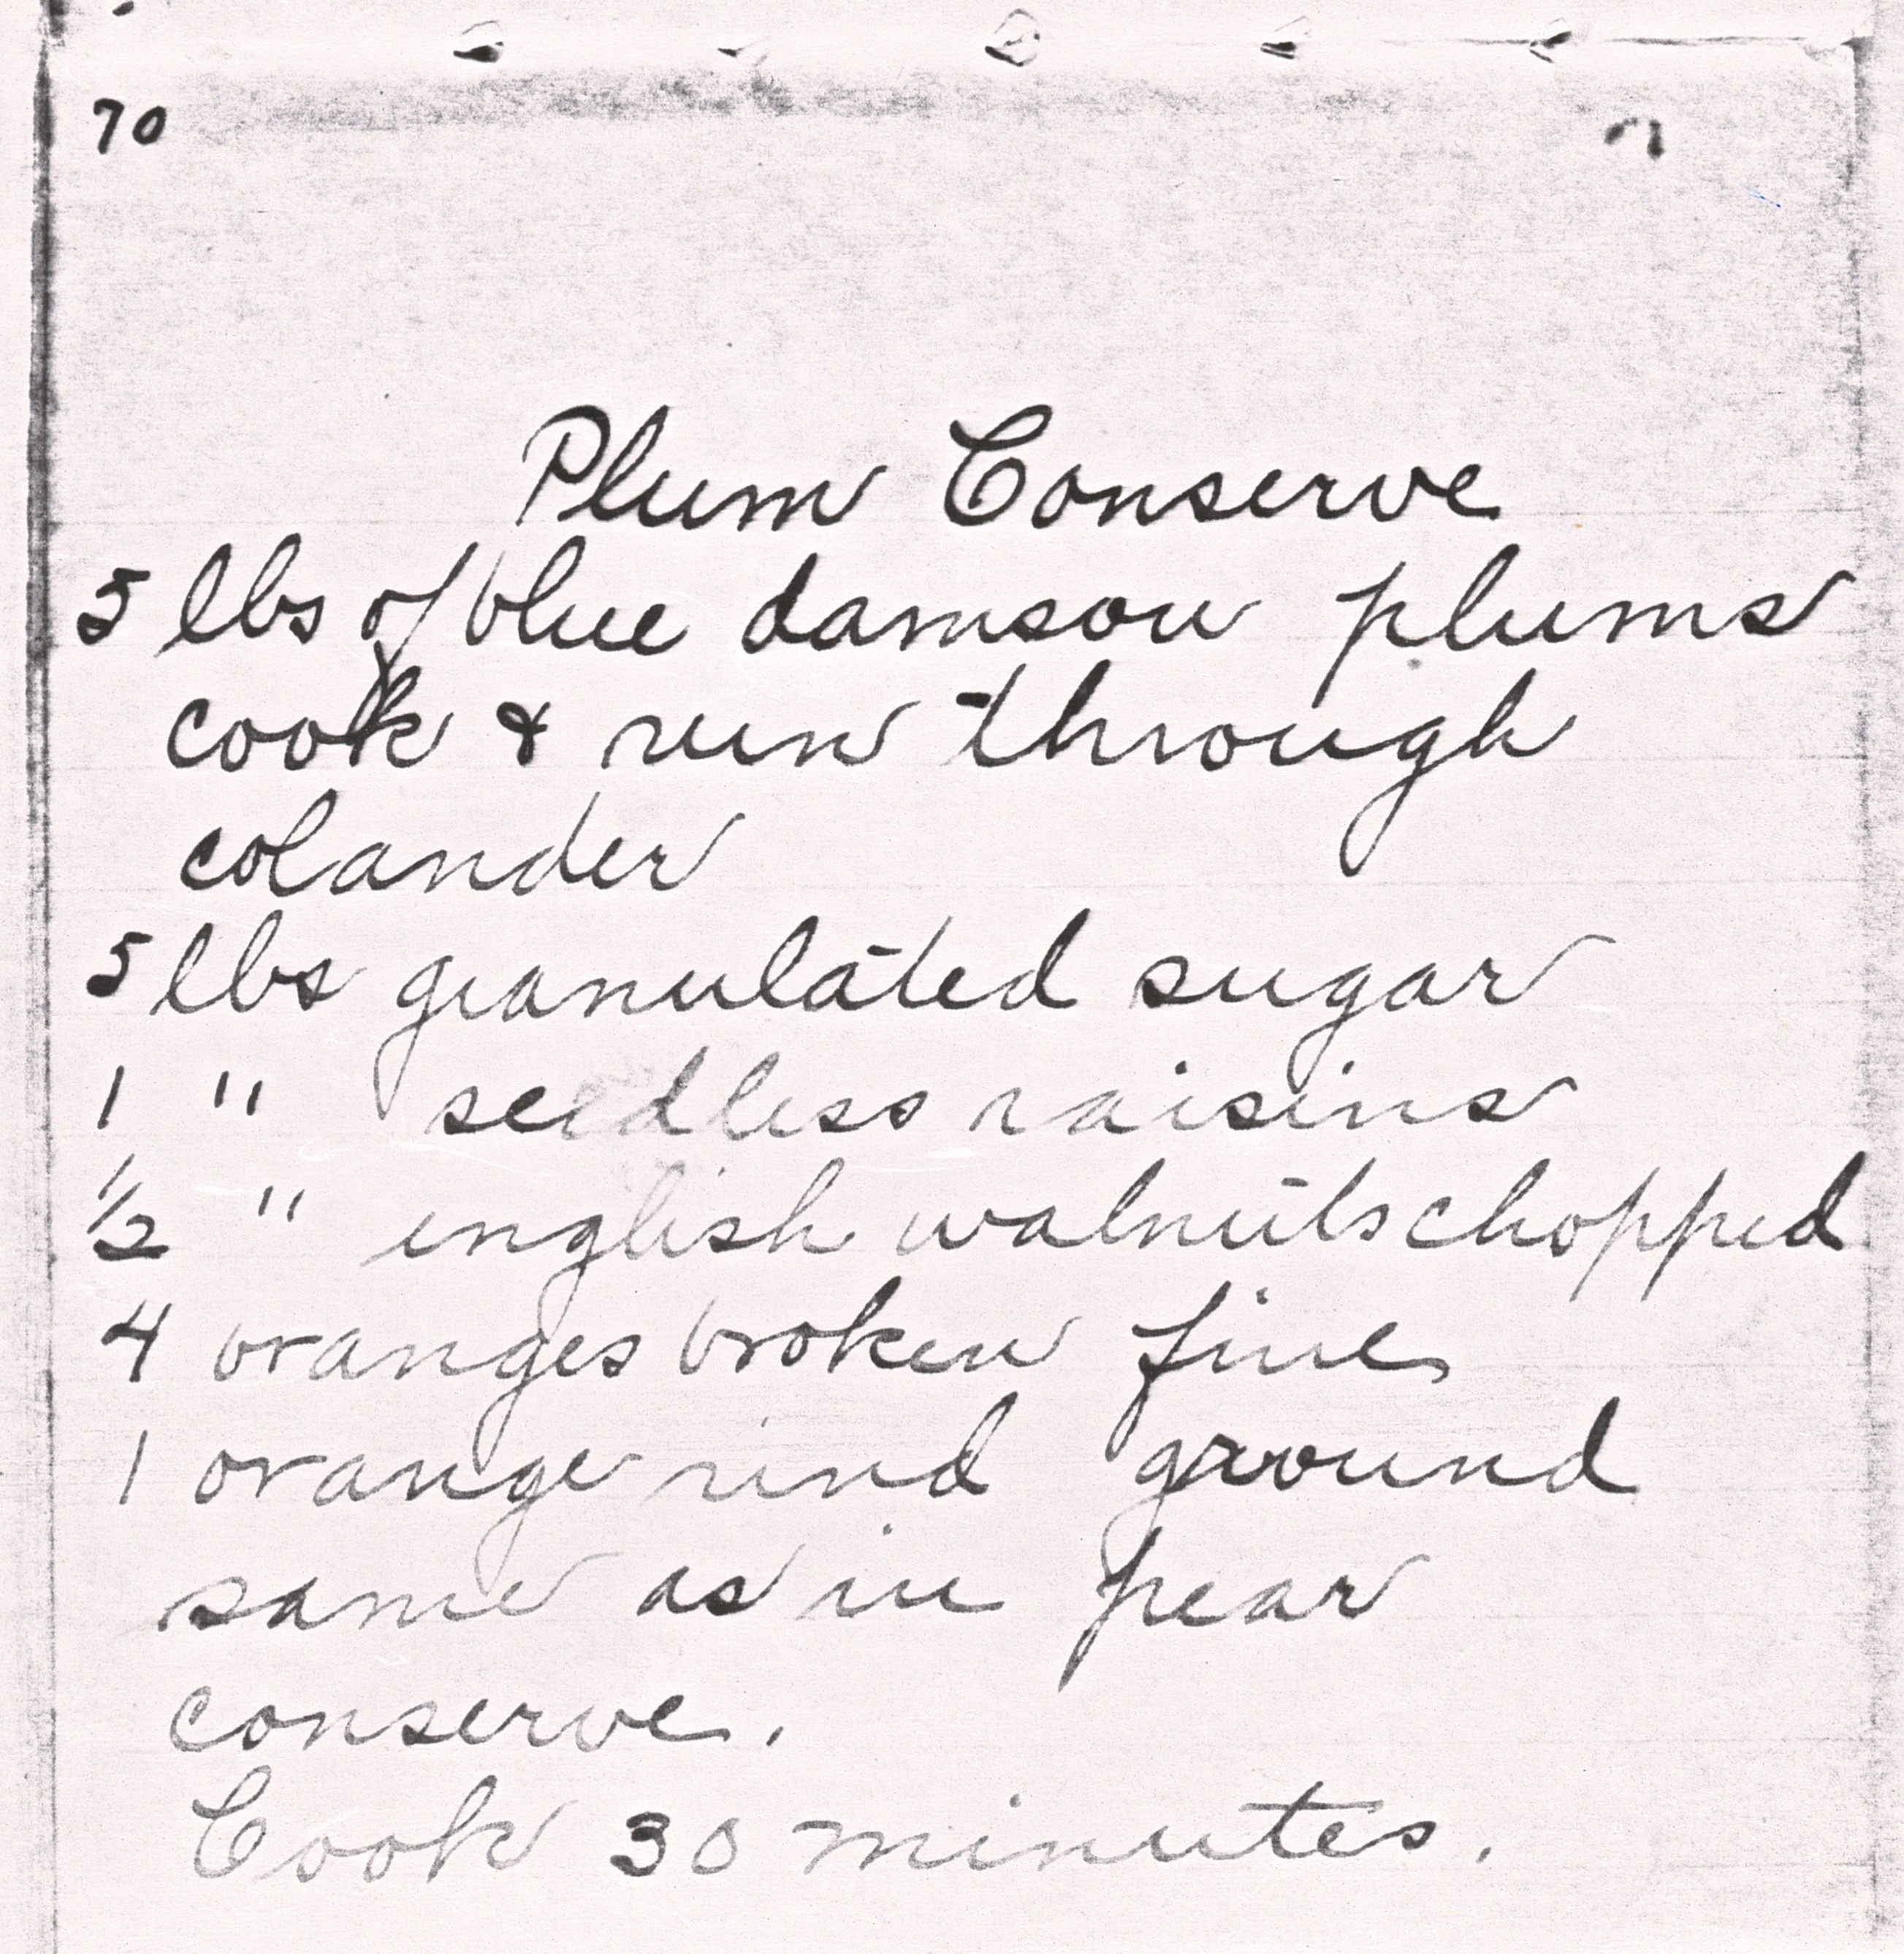 70
Plum Conserve
5 lbs of blue damson plums
cook & run through
colander
5 lbs granulated sugar
1 " seedless raisins
1/2 " english walnuts chopped
4 oranges broken fine
1 orange rind ground
same as in pear
conserve.
Cook 30 minutes.